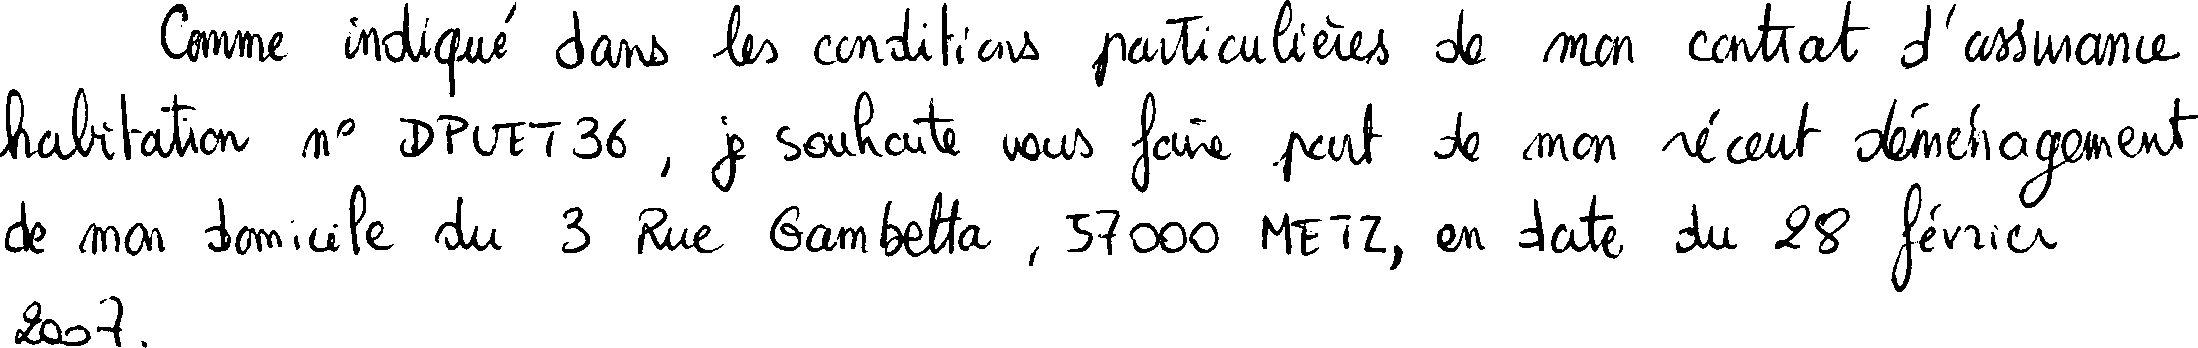 Comme indiqué dans les conditions particulières de mon contrat d'assurance
habitation n° DPUET36, je souhaite vous faire part de mon récent déménagement
de mon domicile du 3 Rue Gambetta, 57000 METZ, en date du 28 février
2007.